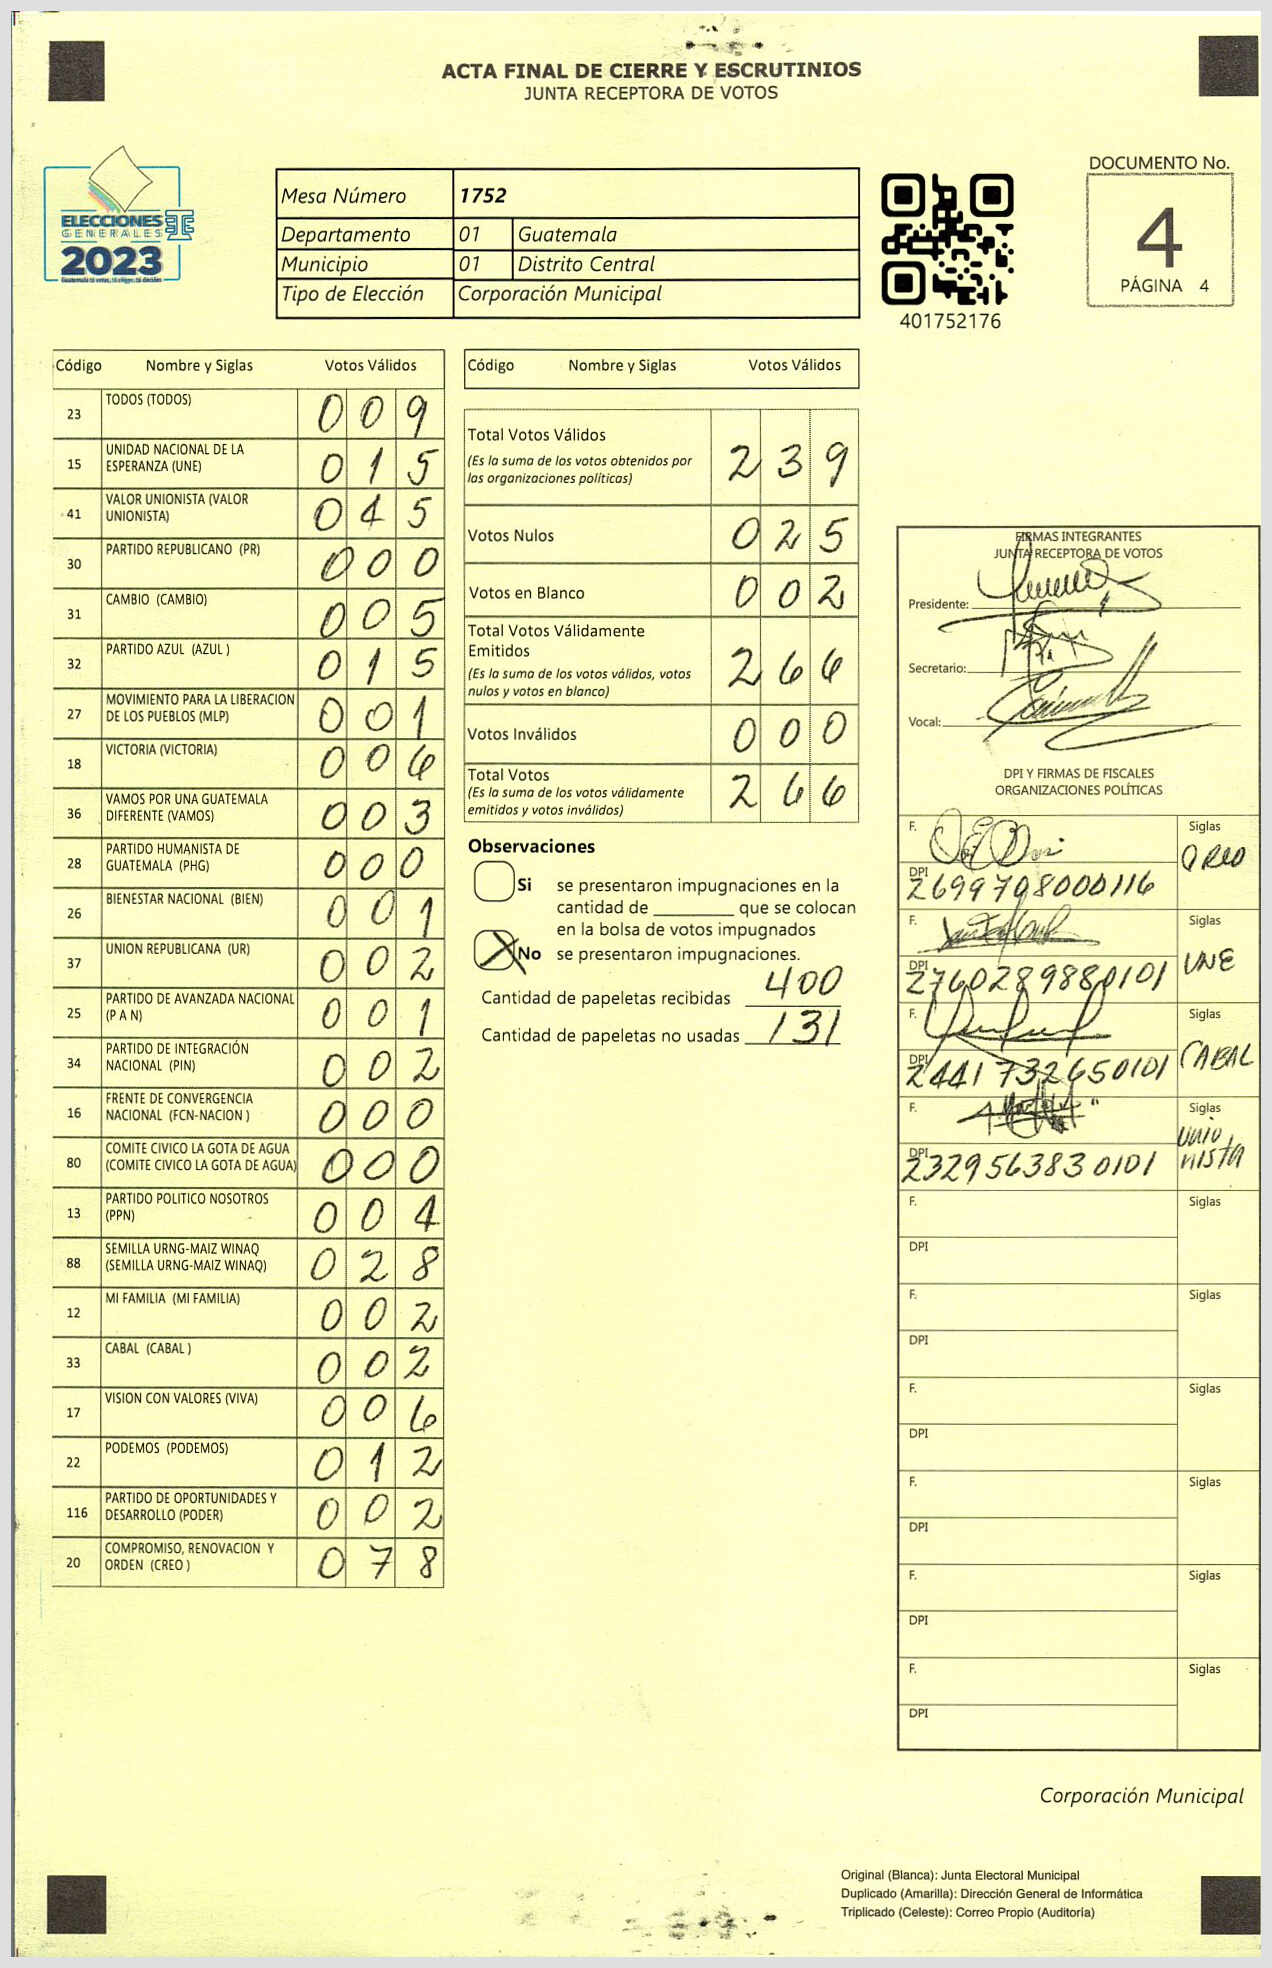 ACTA FINAL DE CIERRE Y ESCRUTINIOS
JUNTA RECEPTORA DE VOTOS
ELECCIONES
GENERALES
2023
Mesa Número 1752
Departamento 01 Guatemala
Municipio 01 Distrito Central
Tipo de Elección Corporación Municipal
401752176
DOCUMENTO No.
4
PÁGINA 4
Código Nombre y Siglas Votos Válidos
23 TODOS (TODOS) 009
15 UNIDAD NACIONAL DE LA ESPERANZA (UNE) 015
41 VALOR UNIONISTA (VALOR UNIONISTA) 045
30 PARTIDO REPUBLICANO (PR) 000
31 CAMBIO (CAMBIO) 005
32 PARTIDO AZUL (AZUL ) 015
27 MOVIMIENTO PARA LA LIBERACION DE LOS PUEBLOS (MLP) 001
18 VICTORIA (VICTORIA) 006
36 VAMOS POR UNA GUATEMALA DIFERENTE (VAMOS) 003
28 PARTIDO HUMANISTA DE GUATEMALA (PHG) 000
26 BIENESTAR NACIONAL (BIEN) 001
37 UNION REPUBLICANA (UR) 002
25 PARTIDO DE AVANZADA NACIONAL (P A N) 001
34 PARTIDO DE INTEGRACIÓN NACIONAL (PIN) 002
16 FRENTE DE CONVERGENCIA NACIONAL (FCN-NACION ) 000
80 COMITE CIVICO LA GOTA DE AGUA (COMITE CIVICO LA GOTA DE AGUA) 000
13 PARTIDO POLITICO NOSOTROS (PPN) 004
88 SEMILLA URNG-MAIZ WINAQ (SEMILLA URNG-MAIZ WINAQ) 028
12 MI FAMILIA (MI FAMILIA) 002
33 CABAL (CABAL ) 002
17 VISION CON VALORES (VIVA) 006
22 PODEMOS (PODEMOS) 012
116 PARTIDO DE OPORTUNIDADES Y DESARROLLO (PODER) 002
20 COMPROMISO, RENOVACION Y ORDEN (CREO ) 078
Código Nombre y Siglas Votos Válidos
Total Votos Válidos 239
(Es la suma de los votos obtenidos por
las organizaciones políticas)
Votos Nulos 025
Votos en Blanco 002
Total Votos Válidamente
Emitidos 266
(Es la suma de los votos válidos, votos
nulos y votos en blanco)
Votos Inválidos 000
Total Votos 266
(Es la suma de los votos válidamente
emitidos y votos inválidos)
Observaciones
Si se presentaron impugnaciones en la
cantidad de ________ que se colocan
en la bolsa de votos impugnados
No se presentaron impugnaciones.
Cantidad de papeletas recibidas 400
Cantidad de papeletas no usadas 131
FIRMAS INTEGRANTES
JUNTA RECEPTORA DE VOTOS
Presidente:
Secretario:
Vocal:
DPI Y FIRMAS DE FISCALES
ORGANIZACIONES POLÍTICAS
F. Siglas
DPI 2699708000116
F. Siglas UNE
DPI 2760289880101
F. Siglas CABAL
DPI 2441732650101
F. Siglas Unionista
DPI 2329563830101
F. Siglas
DPI
F. Siglas
DPI
F. Siglas
DPI
F. Siglas
DPI
F. Siglas
DPI
F. Siglas
DPI
Corporación Municipal
Original (Blanca): Junta Electoral Municipal
Duplicado (Amarilla): Dirección General de Informática
Triplicado (Celeste): Correo Propio (Auditoría)